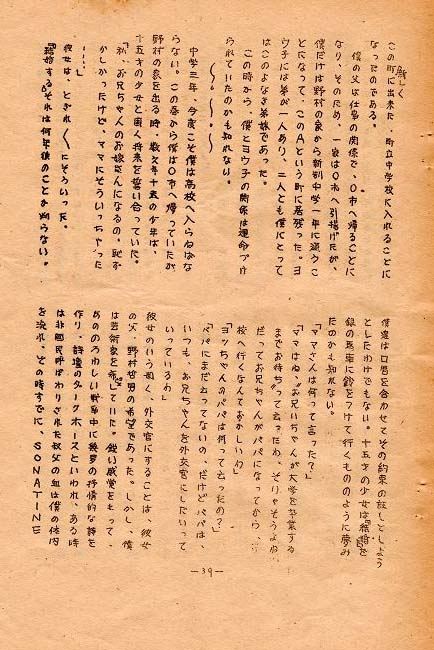 この町に出来た、町立中学校に入れることに
新しく
なったのである。
僕の父は仕事の関係で、O市へ帰ることに
なり、そのため、一家はO市へ引揚げたが、
僕だけは野村の家から新制中学一年に通うこ
とになって、このAという町に居残った。ヨ
ウ子には弟が一人あり、二人とも僕にとって
はこのよなき弟妹であった。
この時から、僕とヨウ子の関係は運命づけ
られていたのかも知れない。
中学三年、今度こそ僕は高校へ入らねばな
らない。この春から僕はO市へ帰っていたが
野村の家を出る時、数え年十五の少年は、
十五才の少女と固く将来を誓い合っていた。
「私、お兄ちゃんのお嫁さんになるの。恥ず
かしかったけど、ママにそういっちゃった
……」
彼女は、とぎれ〱にそういった。
『結婚する』それは何年後のことか判らない。
僕達は口唇を合わせてその約束の放しとしよう
としたわけでもない。十五才の少女は『結婚』を
銀の馬車に鈴をつけて行くもののように夢み
たのかも知れない。
「ママさんは何って言った？」
「ママはね、〝お兄いちゃんが大学を卒業する
までお待ち〟って言ったわ、そりゃそうよね、
だってお兄ちゃんがパパになってから、
校へ行くなんておかしいわ」
「ヨッちゃんのパパは何って言ったの？」
「パパにまだ云ってないの、だけどパパは、
いつも、お兄ちゃんを外交官にしたいって
いっているわ」
彼女のいう如く、外交官にすることは、彼女
の父・野村哲男の希望であった。しかし、僕
は芸術家を希っていた。鋭い感覚をもって、
あののろわしい戦争中に幾多の抒情的な詩を
作り、詩壇のダークホースといわれ、ある時
は非国民呼ばわりされた叔父の血は僕の体内
を流れ、その時すでに、SONATINE
—39—